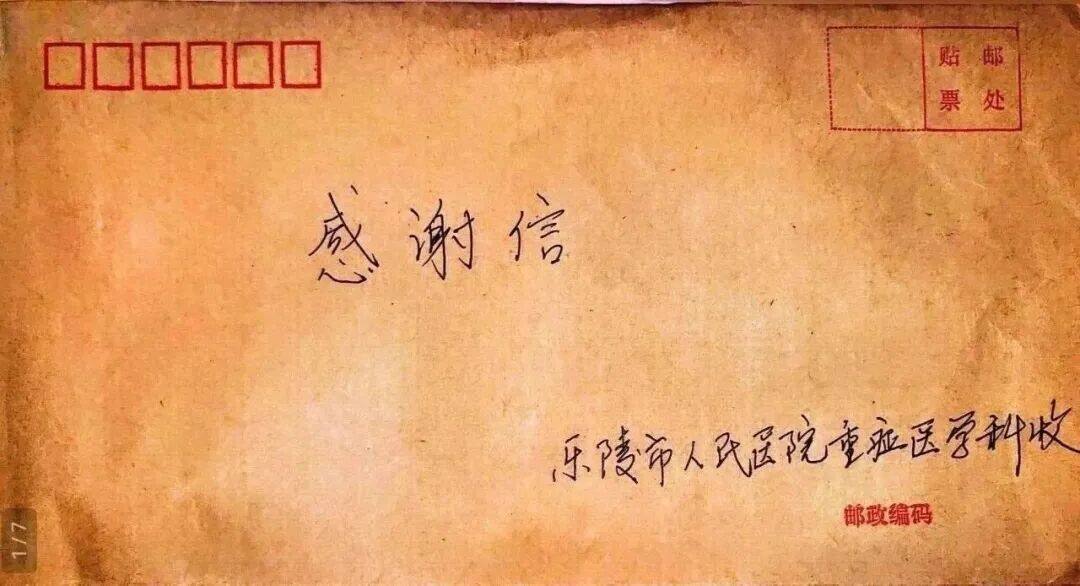 贴邮
票处
感谢信
乐陵市人民医院重症医学科收
邮政编码
1/7